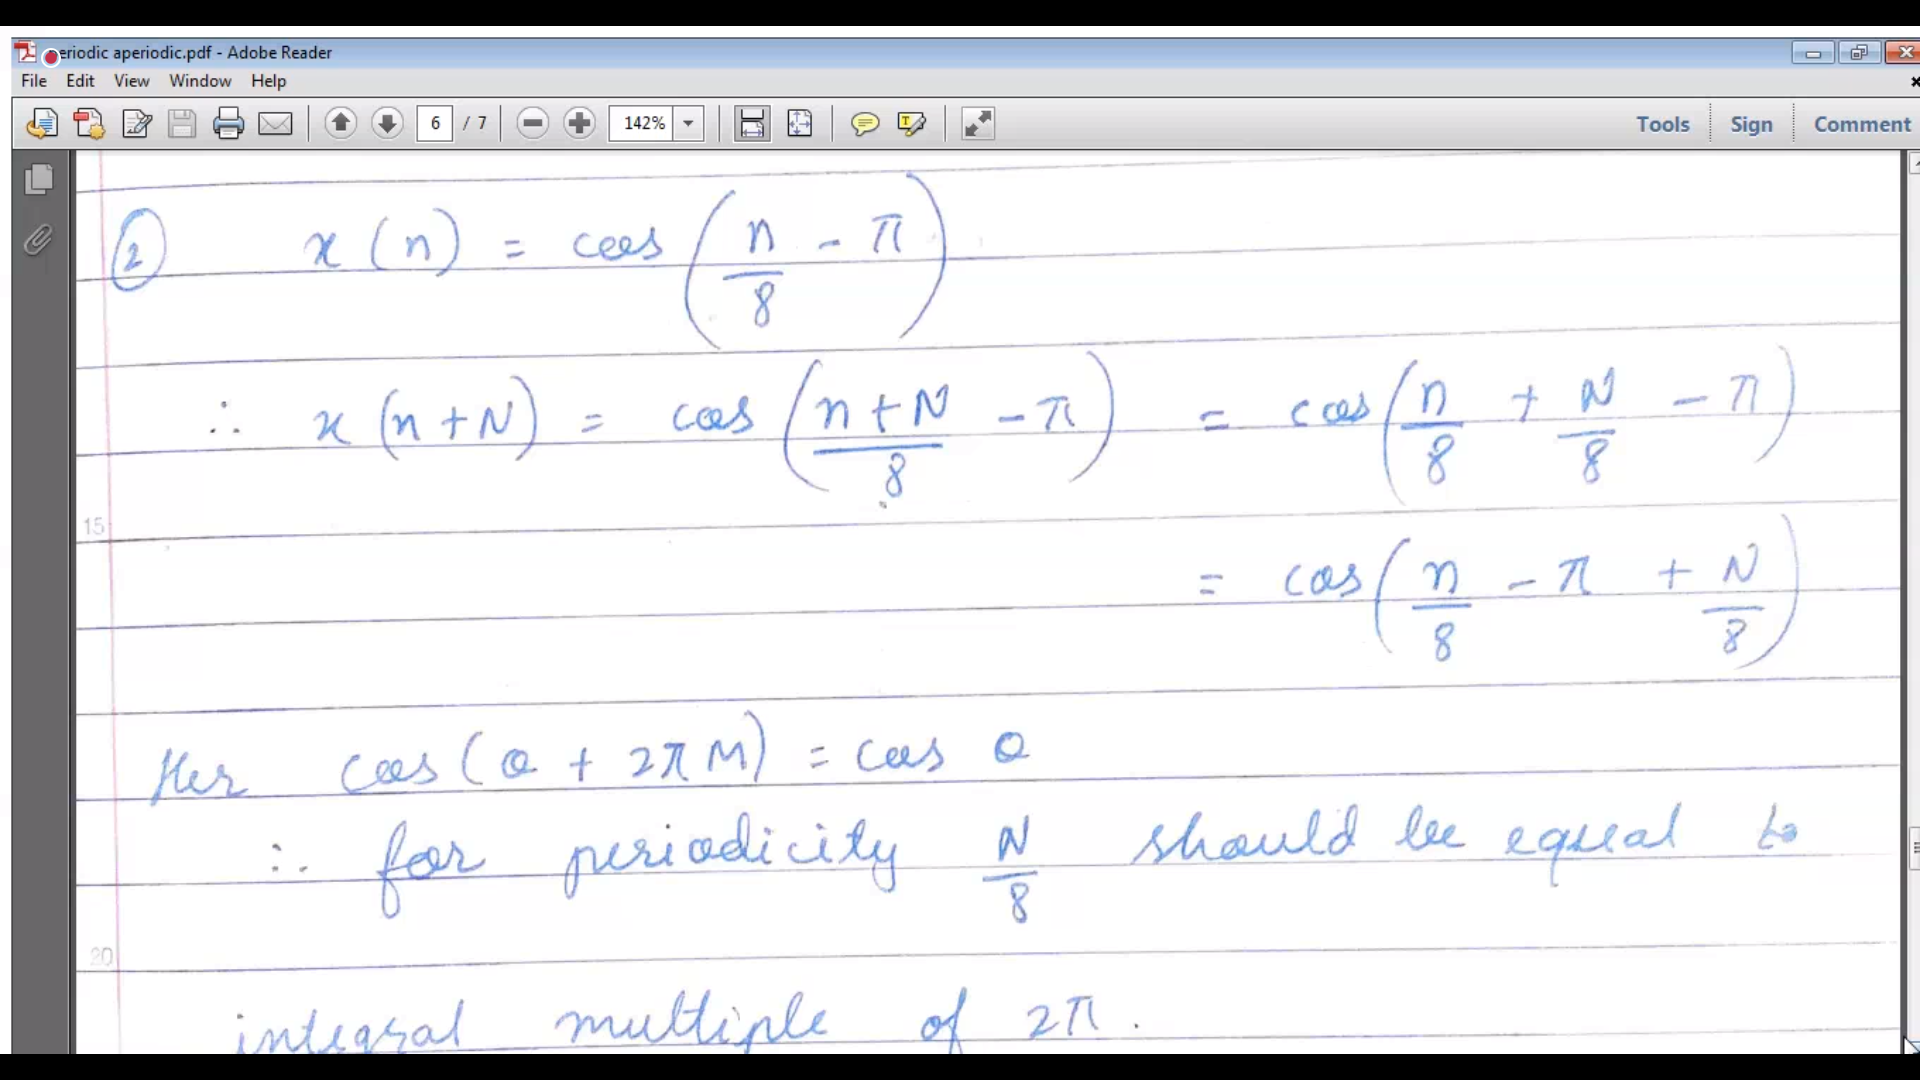 eriodic aperiodic.pdf - Adobe Reader
File Edit View Window Help
6 / 7 142% Tools Sign Comment
2 x(n) = cos(n/8 - π)
∴ x(n+N) = cos((n+N)/8 - π) = cos(n/8 + N/8 - π)
15
= cos(n/8 - π + N/8)
Her cos(θ + 2πM) = cos θ
∴ for periodicity N/8 should be equal to
20
integral multiple of 2π.